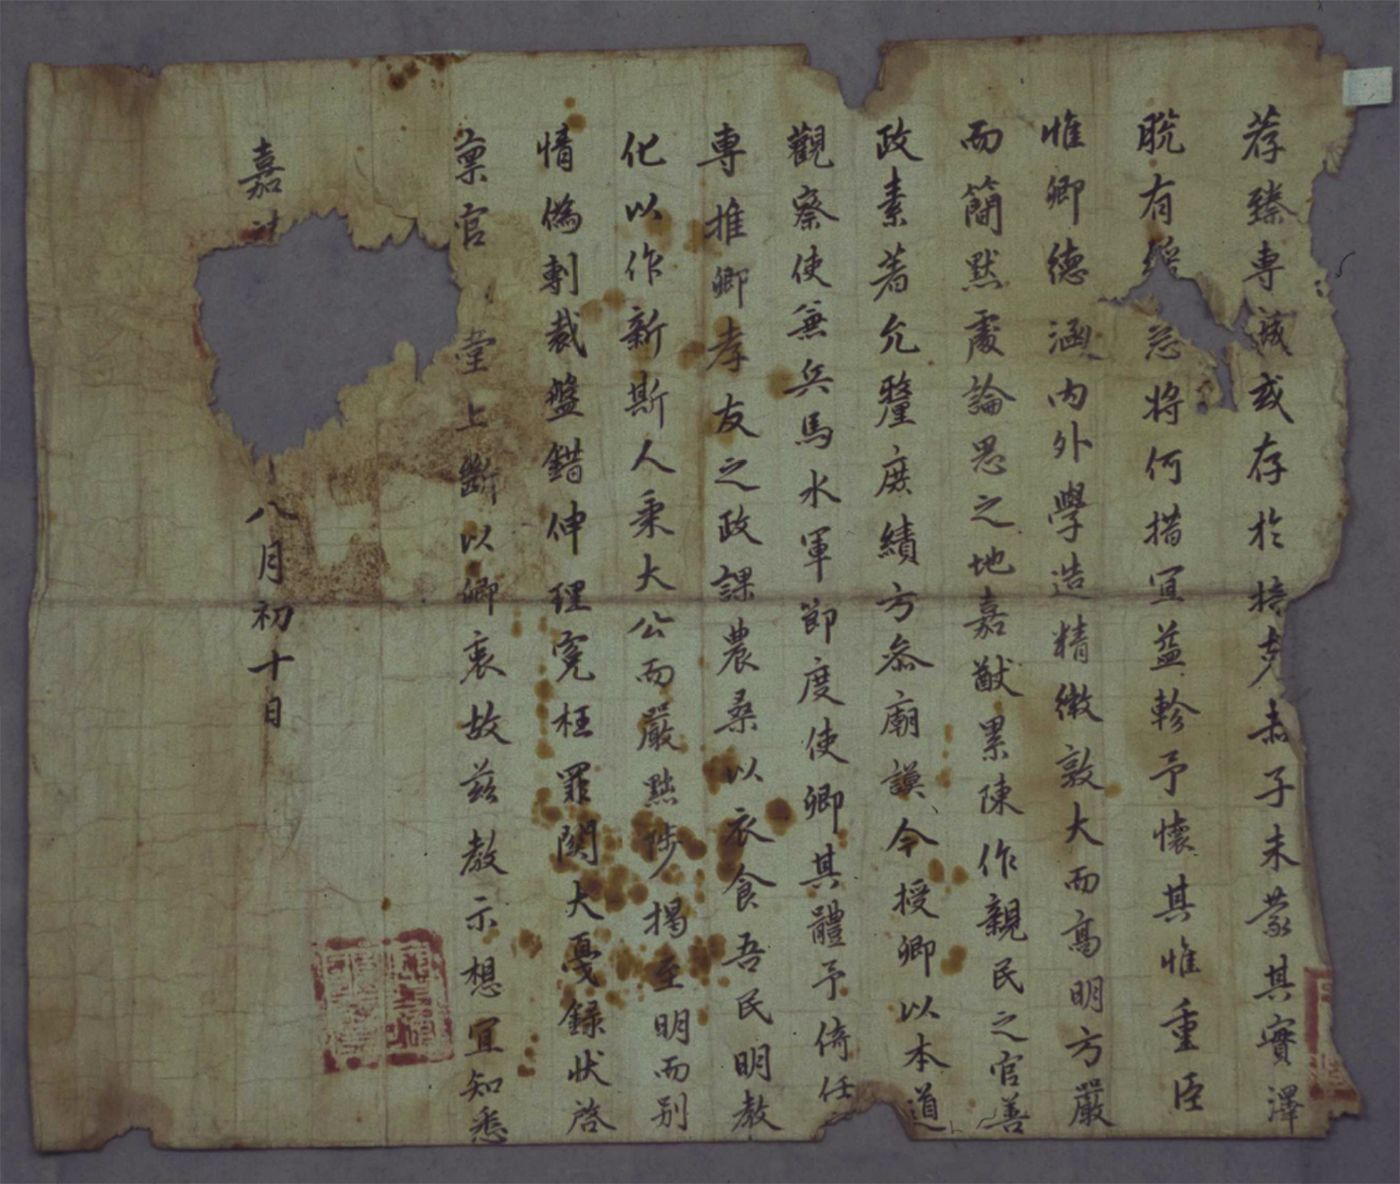 荐臻專誠或存於掊克赤子未蒙其實澤
脫有緩急將何措宜益軫予懷其惟重臣
惟卿德涵內外學造精微敦大而高明方嚴
而簡默處論思之地嘉猷累陳作親民之官善
政素著允釐庶績方叅廟謨今授卿以本道
觀察使兼兵馬水軍節度使卿其體予倚任
專推卿孝友之政課農桑以衣食吾民明教
化以作新斯人秉大公而嚴黜陟揭至明而别
情僞剸裁盤錯伸理寃枉罪関大戛録狀啓
稟官堂上斷以卿裏故玆教示想宜知悉
嘉 八月初十日